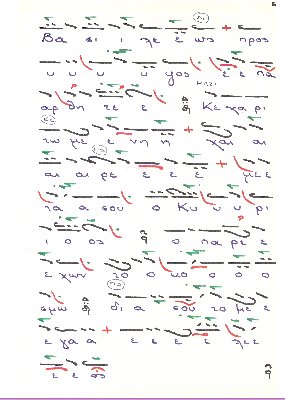 Βα σι ι λε ε ως προς
υ υ υ υ ψος ε ε πα
αρ θη τε ε Και Κε χα ρι
τω με ε νη η χαι αι
αι αι ρε ε ε ε με ε
τα α σου ο Κυ υ υ ρι
ι ο ος ο πα ρε ε
ε χων το ο κο ο ο ο
σμω δι α σου το με ε
ε γα α ε ε ε ε λε ε
ε ε ος